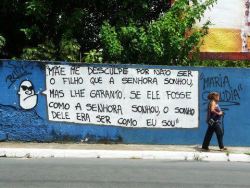 MÃE ME DESCULPE POR NÃO SER
O FILHO QUE A SENHORA SONHOU,
MAS LHE GARANTO, SE ELE FOSSE
COMO A SENHORA SONHOU, O SONHO
DELE ERA SER COMO EU SOU"
MARIA
CLAUDIA